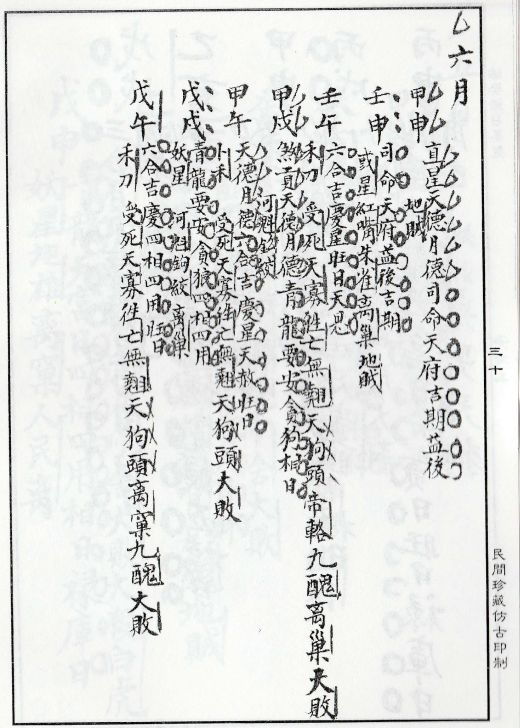 六月
甲申 直星天德月德司命天府吉期益後
地賊
壬申 司命天府益後吉期
或星紅嘴朱雀離巢地賊
壬午 六合吉慶星旺日天恩
禾刀 受死天寡往亡無翹天狗頭帝輅九醜离巢大敗
甲戌 煞貢天德月德青龍要安貪狗相日
河魁鉤絞
甲午 天德月德六合吉慶星天赦旺日
卜禾 受死天寡往亡無翹天狗頭大敗
戊戌 青龍要安貪狼四相四用
妖星 河魁鉤絞离巢
戊午 六合吉慶四相四用旺日
禾刀 受死天寡往亡無翹天狗頭离窠九醜大敗
三十
民間珍藏仿古印制